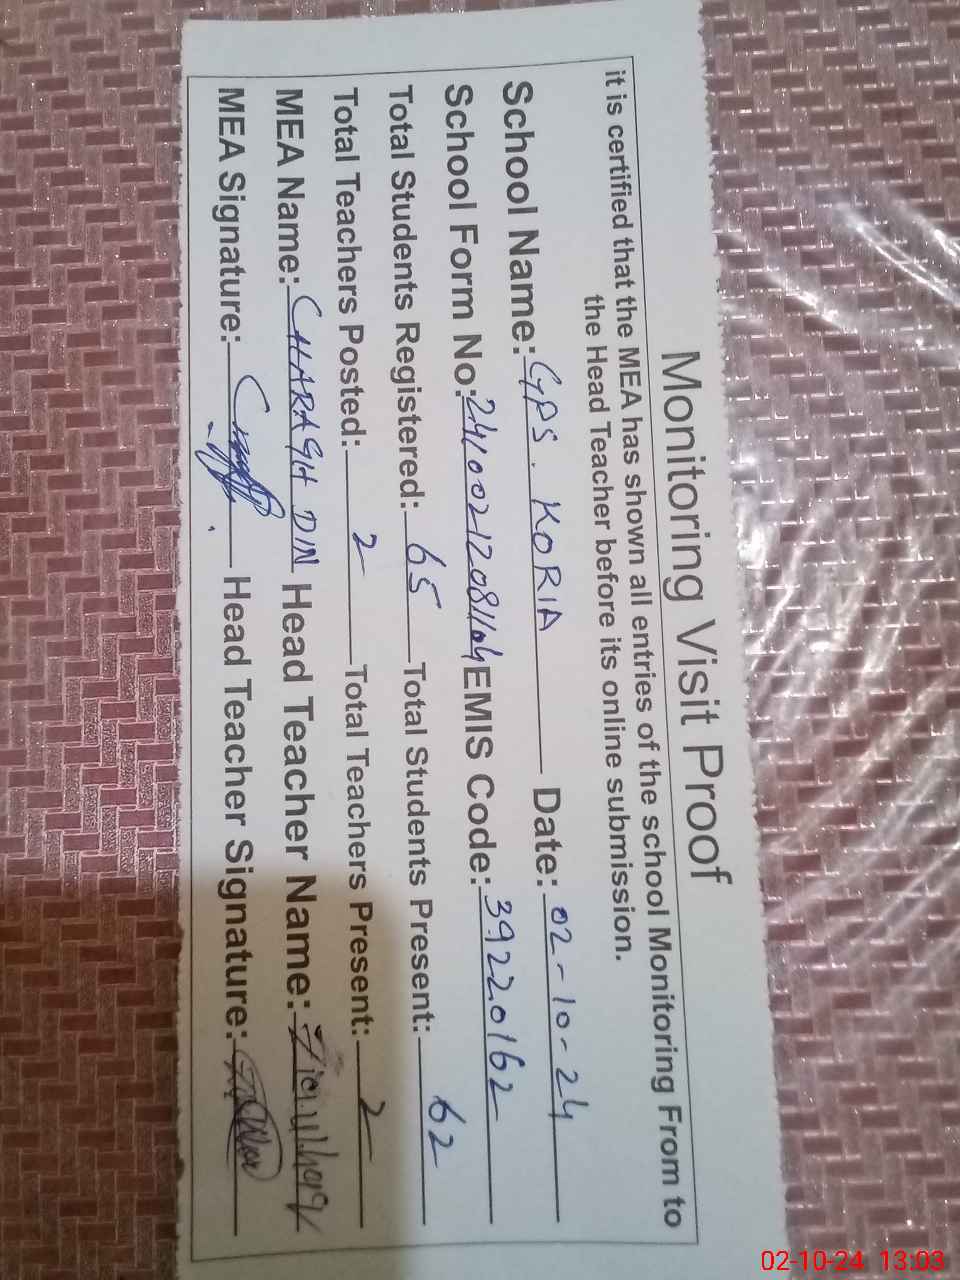 Monitoring Visit Proof
it is certified that the MEA has shown all entries of the school Monitoring From to
the Head Teacher before its online submission.
School Name: GPS. KORIA Date: 02-10-24
School Form No: EMIS Code: 39220162
Total Students Registered: 65 Total Students Present: 62
Total Teachers Posted: 2 Total Teachers Present: 2
MEA Name: CHARAGH DIN Head Teacher Name:
MEA Signature: Head Teacher Signature:
02-10-24 13:03